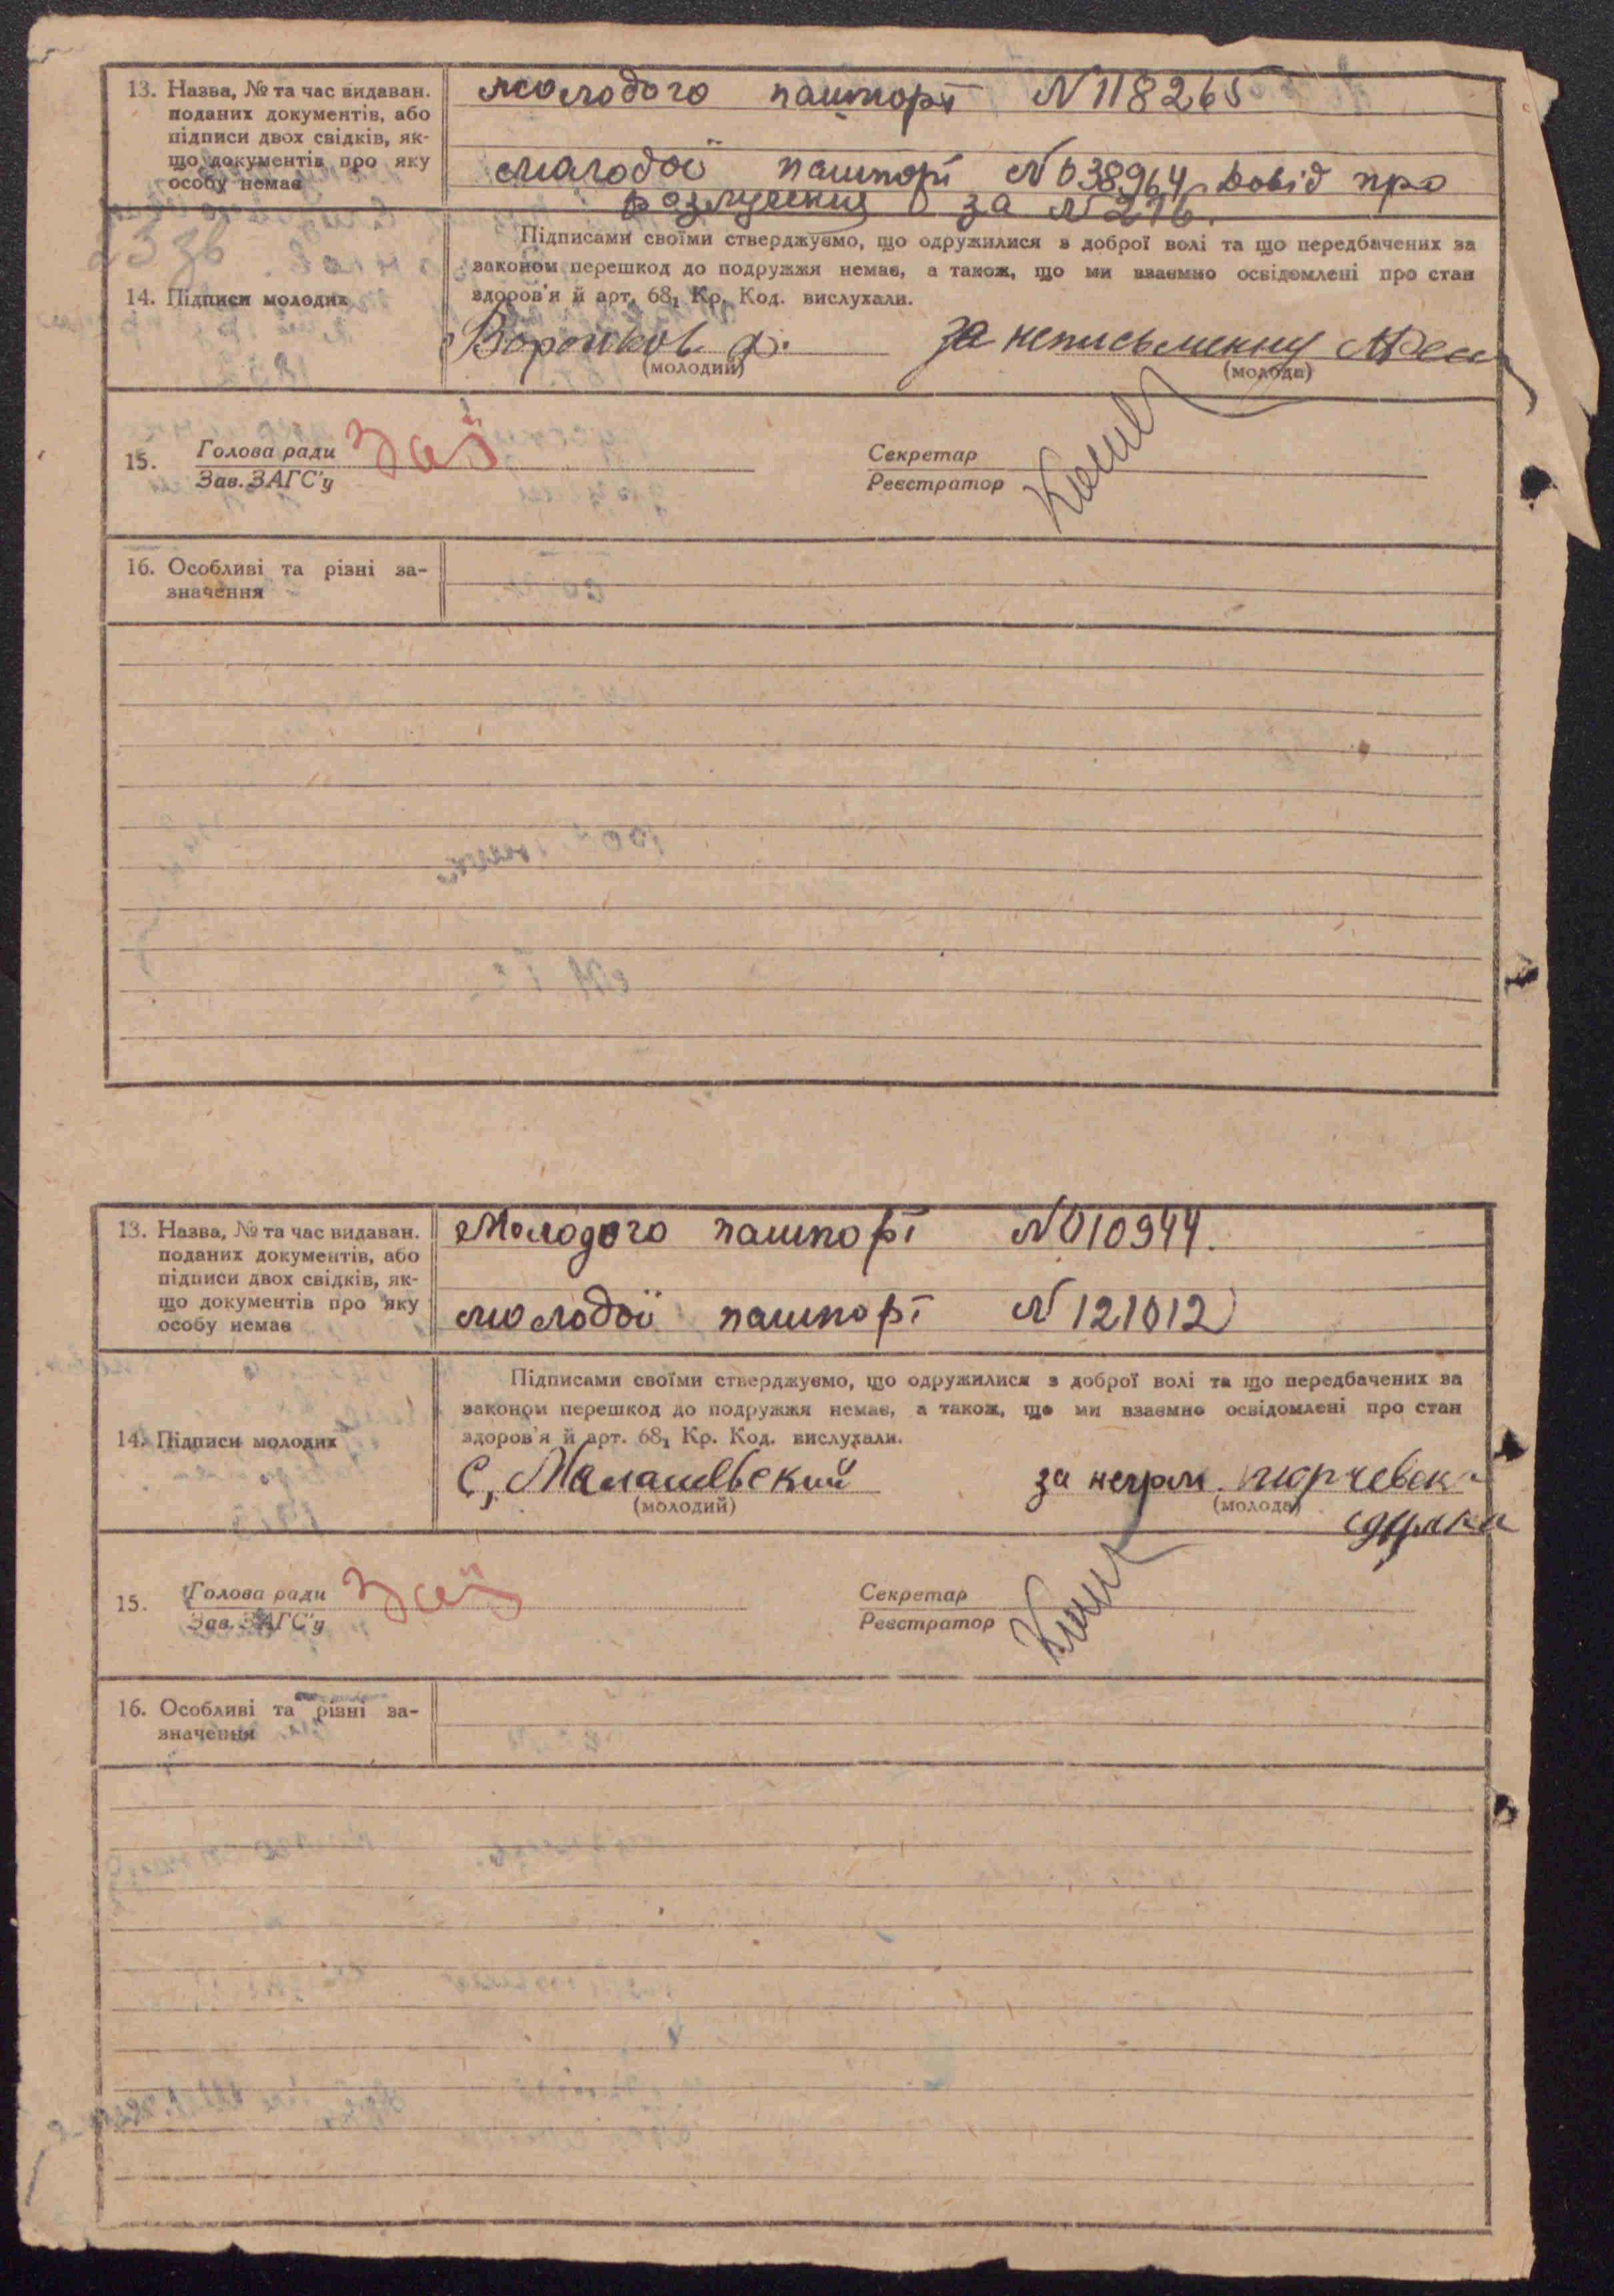 13. Назва, № та час видаван.
поданих документів, або
підписи двох свідків, як-
що документів про яку
особу немає
молодого пашпорт N 118265
молодої пашпорт N 038964 Довід про
розлучення за N 276.
14. Підписи молодих
Підписами своїми стверджуємо, що одружилися з доброї волі та що передбачених за
законом перешкод до подружжя немає, а також, що ми взаємно освідомлені про стан
здоров'я й арт. 68₁ Кр. Код. вислухали.
Воронков за неписьменну
(молодий) (молода)
15. Голова ради
Зав. ЗАГС'у
Секретар
Реєстратор
16. Особливі та різні за-
значення
13. Назва, № та час видаван.
поданих документів, або
підписи двох свідків, як-
що документів про яку
особу немає
Молодого пашпорт N 010944.
молодої пашпорт N 121012
14. Підписи молодих
Підписами своїми стверджуємо, що одружилися з доброї волі та що передбачених за
законом перешкод до подружжя немає, а також, що ми взаємно освідомлені про стан
здоров'я й арт. 68₁ Кр. Код. вислухали.
С, за негрм.
(молодий) (молода)
15. Голова ради
Зав. ЗАГС'у
Секретар
Реєстратор
16. Особливі та різні за-
значення